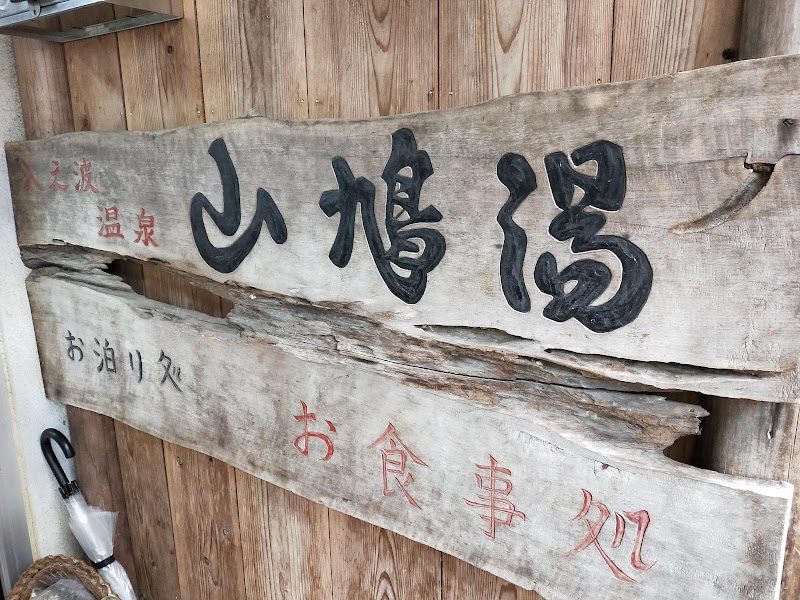 入之波
温泉
山鳩湯
お泊り処
お食事処